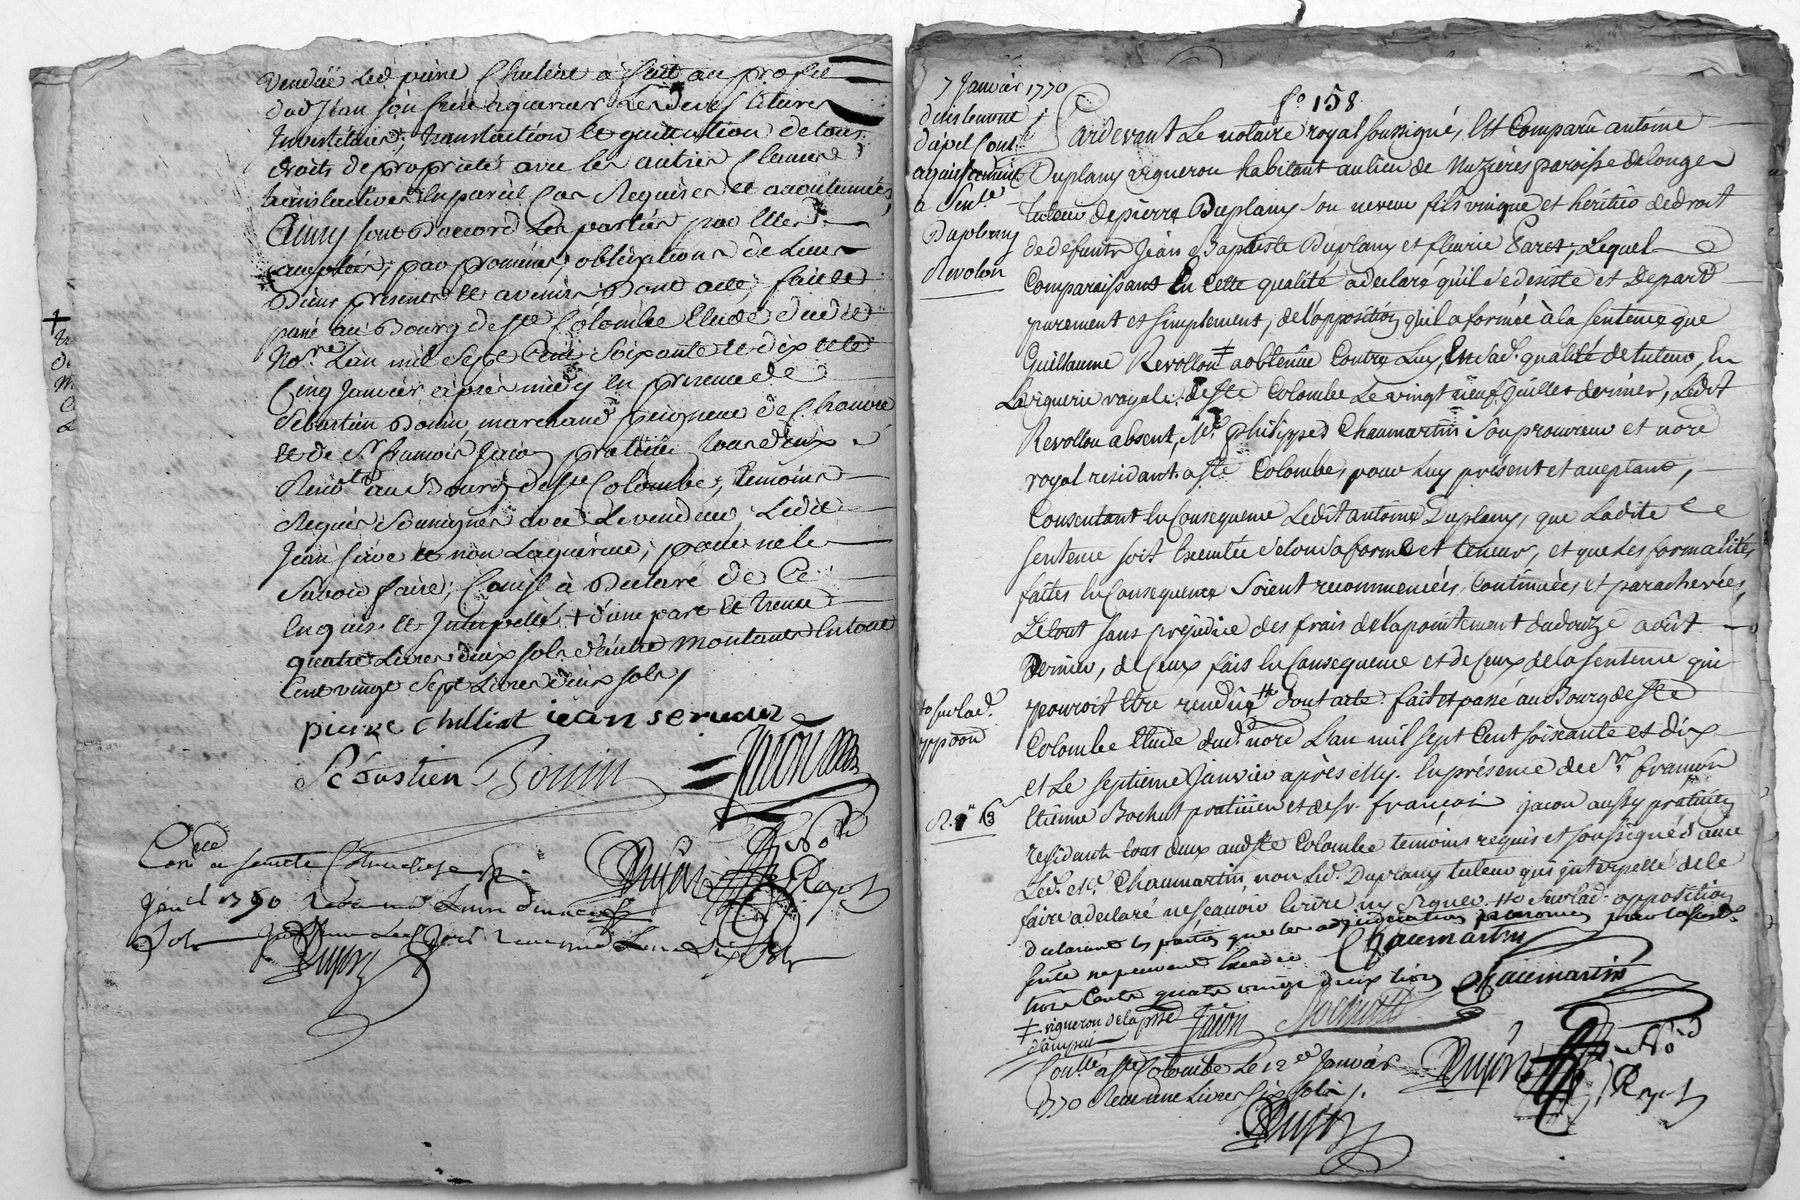 vendüe led. pierre Chulliat a fait au profit
dud. Jean son frere aquereur les devestitures
Investitures, translation et quittation de tous
droits de propriété avec les autres clauses
translatives en pareil cas requises et acoutumées,
Ainsy sont d'accord les parties par elles
acceptées, par promesses, obligations de leurs
Biens presents et avenirs Dont acte, fait et
passé au Bourg de Ste Colombe Etude dudit
Nore L'an mil sept Cent soixante et dix et le
Cinq Janvier après midy en presence de
Sebastien Bonin marchand
et de Sr françois Jacon praticien tous deux
Residts au Bourg de Ste Colombe, temoins
Requis soussignés avec le vendeur, Ledit
Jean Serve et non L'aquereur, pour ne le
savoir faire, Comme il a Declaré de Ce
Enquis et Interpellé + d'une part et trente
quatre Livres deux sols d'autre montants En tout
Cent vingt sept Livres deux sols,
pierre chulliat jean serve
Sébastien Bonin Jacon
Dujast No Rd
Rayot
Conlé a Sainte Colombe le
Janer 1770
Sols
Dujast
fo 158
7 Janvier 1770
desistement
d'apel Cont
aquiescement
a Sentce
Duplany
Revolon
Pardevant Le notaire royal soussigné, Est Comparu antoine
Duplany vigneron habitant au lieu de Nuzieres paroisse de longes
tuteur de pierre Duplany son neveu fils unique et héritier de droit
de defunts Jean Baptiste Duplany et fleurie Paret, Lequel
Comparaissant En Cette qualité a declaré qu'il se desiste et Depart
purement et simplement, de l'opposition qu'il a formée à la sentence que
Guillaume Revollon ‡ a obtenue Contre Luy, En sad. qualité de tuteur, En
La viguerie royale de Ste Colombe Le vingt neuf Juillet dernier, Ledit
Revollon absent, Me philippes Chaumartin son procureur et nore
royal residant a Ste Colombe, pour Luy présent et aceptant,
Consentant En Consequence Ledit antoine Duplany, que Ladite
sentence soit Executée selon sa forme et teneur, et que Les formalités
faites En Consequence soient recommencées, Continuées et parachevées,
Le tout sans préjudice des frais de l'apointement du douze août
Dernier, de Ceux fais En Consequence et de Ceux de la sentence qui
pourroit Etre rendüe # dont acte. fait et passé au Bourg de Ste
Colombe Etude dud. nore L'an mil sept Cent soixante et dix
et Le septieme Janvier après My. En présence de Sr françois
Etienne Bochut praticien et de Sr. françois Jacon aussy praticien
residants tous deux aud. Ste Colombe temoins requis et soussignés avec
Led. Me Chaumartin, non Led. Duplany tuteur qui interpellé de le
faire a declaré ne sçavoir Ecrire ny signer # Sur lad. opposition
declarant les parties que les adjudications prononcées par lad. Sentce
# sur lad.
oppoon
Chaumartin
Chaumartin
‡ vigneron de la psse
d'ampuis
Jacon Bochut
Dujast No Rd
Rayot
Conlé a Ste Colombe Le 12e Janvier
1770 Reçu une Livre six sols.
Dujast